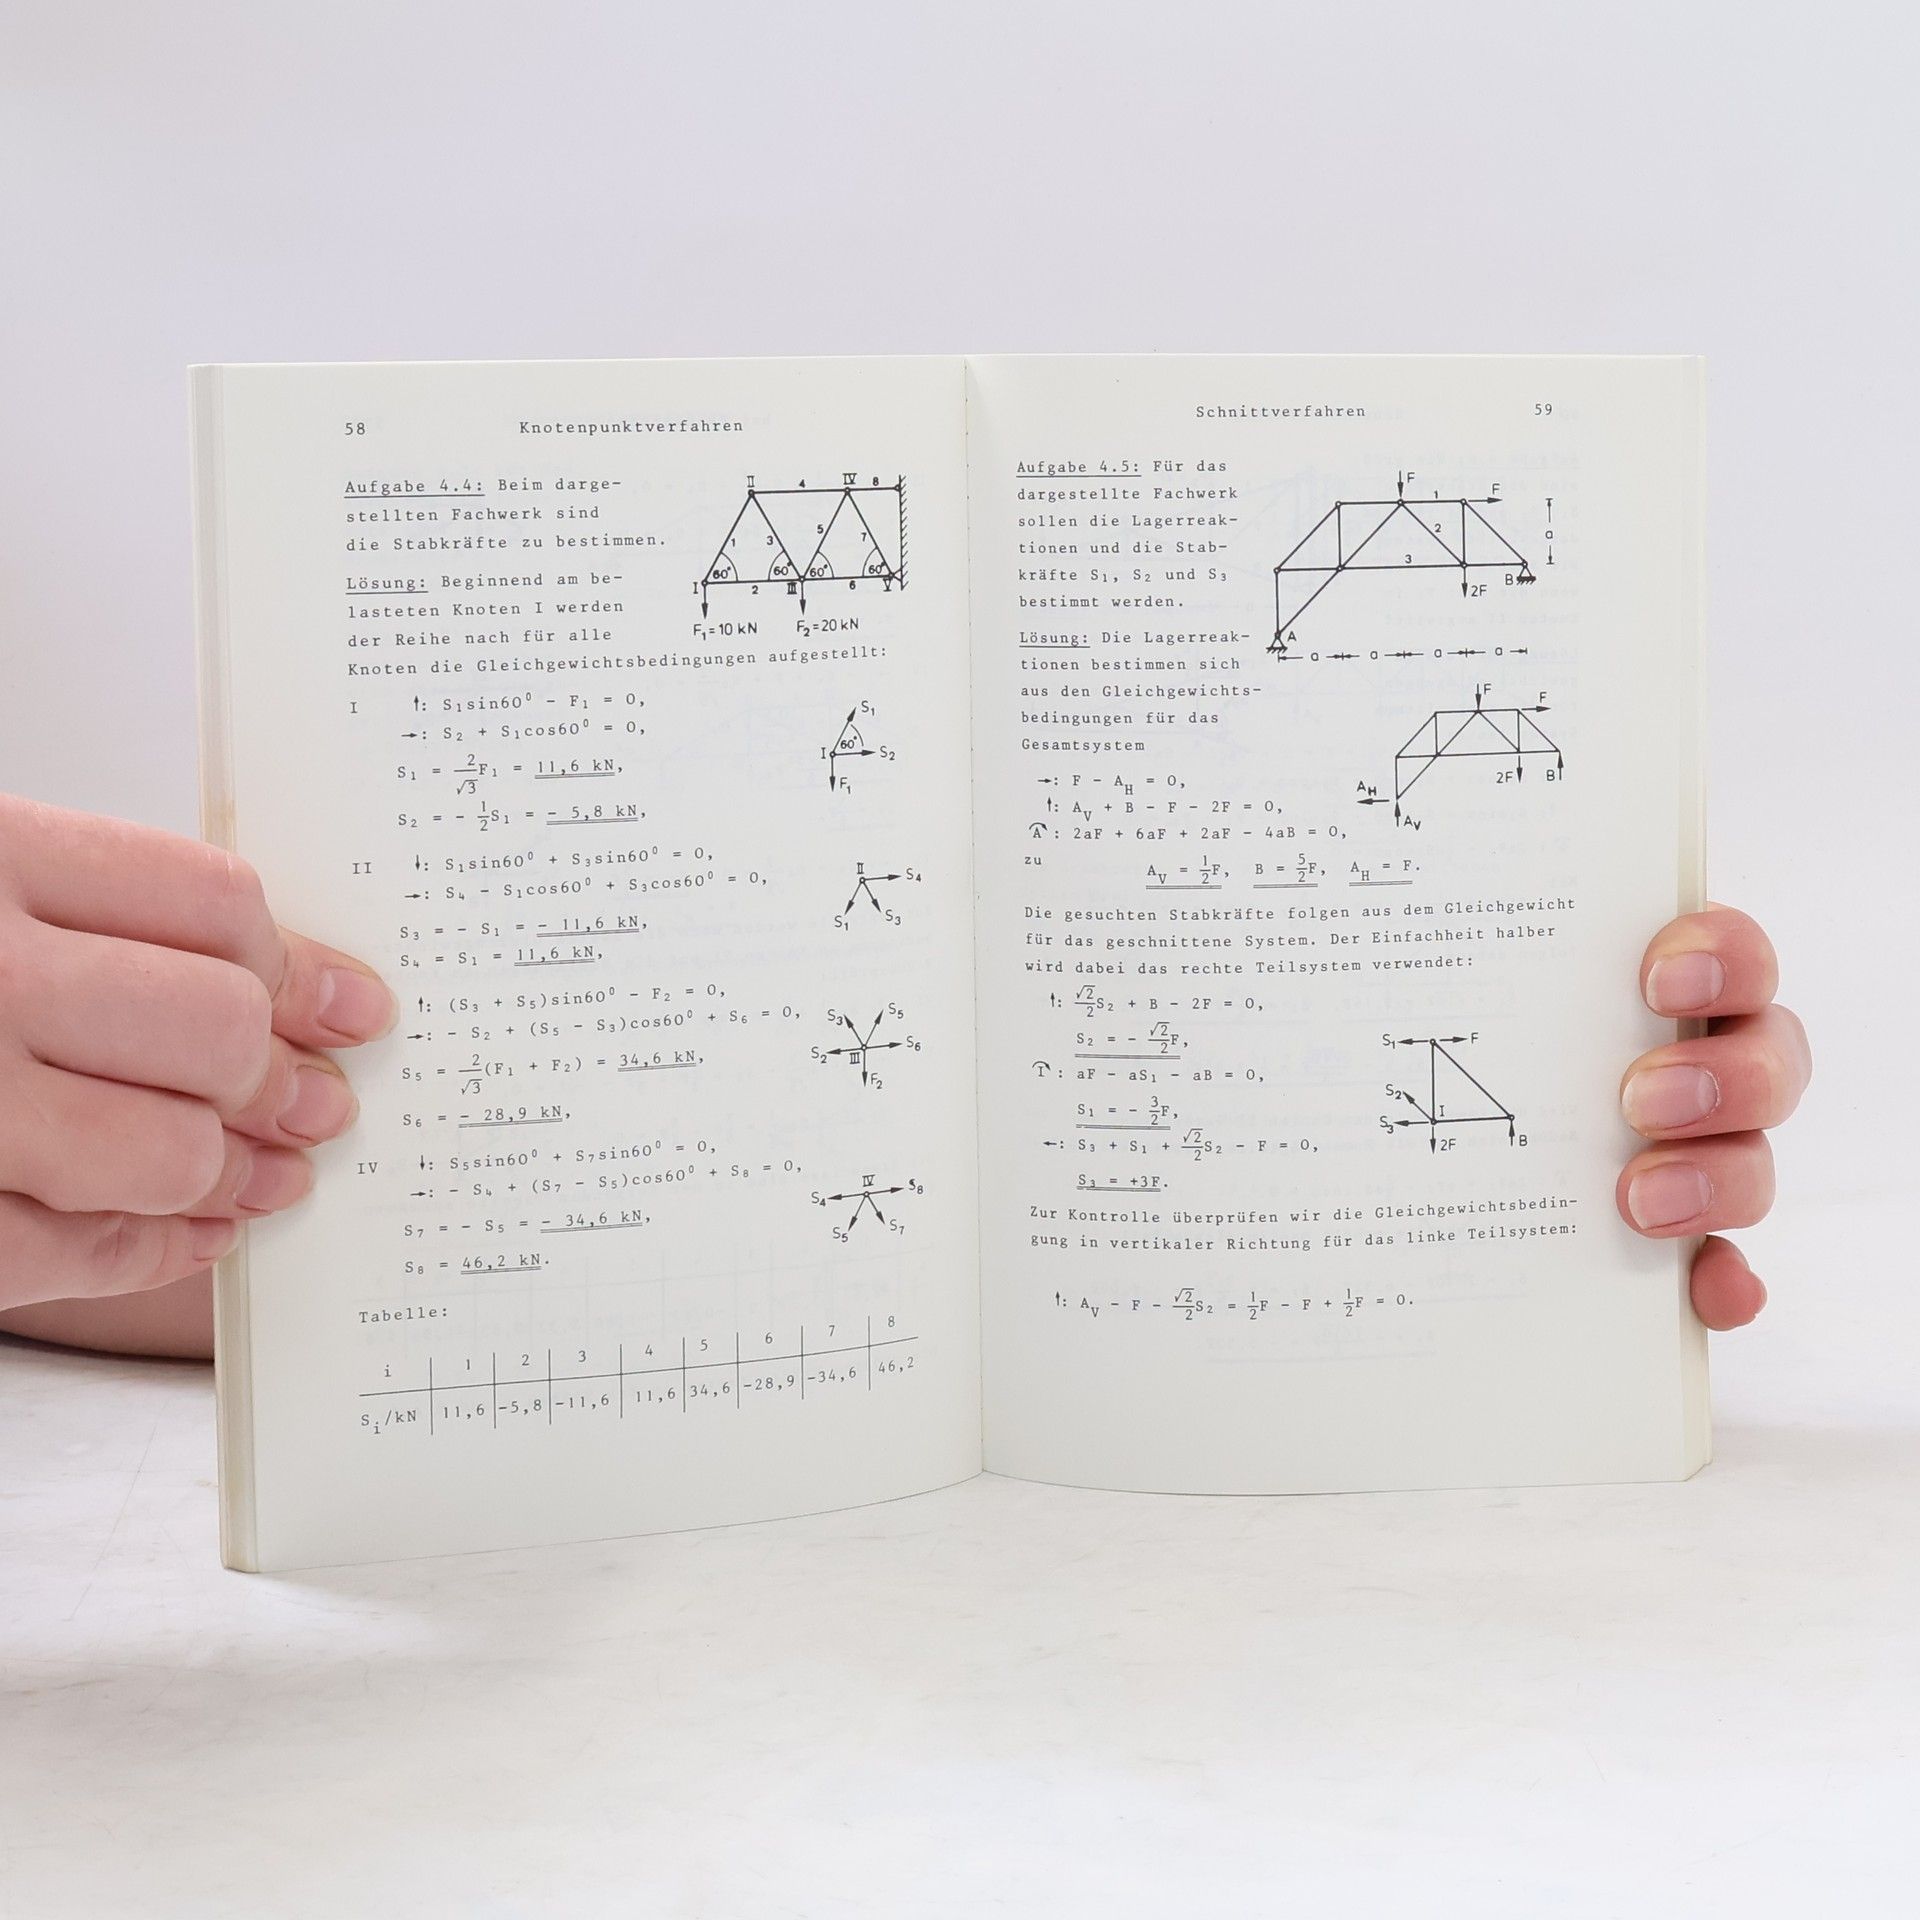 58 Knotenpunktverfahren
Aufgabe 4.4: Beim darge-
stellten Fachwerk sind
die Stabkräfte zu bestimmen.
Lösung: Beginnend am be-
lasteten Knoten I werden
der Reihe nach für alle
Knoten die Gleichgewichtsbedingungen aufgestellt:
II 4 IV 8
1 3 5 7
60° 60° 60° 60°
I 2 III 6 V
F₁=10 kN F₂=20 kN
I ↑: S₁sin60⁰ - F₁ = 0,
→: S₂ + S₁cos60⁰ = 0,
S₁ = 2/√3 F₁ = 11,6 kN,
S₂ = - 1/2 S₁ = - 5,8 kN,
S₁
60°
I S₂
F₁
II ↓: S₁sin60⁰ + S₃sin60⁰ = 0,
→: S₄ - S₁cos60⁰ + S₃cos60⁰ = 0,
S₃ = - S₁ = - 11,6 kN,
S₄ = S₁ = 11,6 kN,
II S₄
S₁ S₃
↑: (S₃ + S₅)sin60⁰ - F₂ = 0,
→: - S₂ + (S₅ - S₃)cos60⁰ + S₆ = 0,
S₅ = 2/√3 (F₁ + F₂) = 34,6 kN,
S₆ = - 28,9 kN,
S₃ S₅
S₂ III S₆
F₂
IV ↓: S₅sin60⁰ + S₇sin60⁰ = 0,
→: - S₄ + (S₇ - S₅)cos60⁰ + S₈ = 0,
S₇ = - S₅ = - 34,6 kN,
S₈ = 46,2 kN.
IV
S₄ S₈
S₅ S₇
Tabelle:
i 1 2 3 4 5 6 7 8
Sᵢ/kN 11,6 -5,8 -11,6 11,6 34,6 -28,9 -34,6 46,2
Schnittverfahren 59
Aufgabe 4.5: Für das
dargestellte Fachwerk
sollen die Lagerreak-
tionen und die Stab-
kräfte S₁, S₂ und S₃
bestimmt werden.
F
1 F
2 a
3
2F B
A
a a a a
Lösung: Die Lagerreak-
tionen bestimmen sich
aus den Gleichgewichts-
bedingungen für das
Gesamtsystem
F F
2F B
A_H
A_V
→: F - A_H = 0,
↑: A_V + B - F - 2F = 0,
A: 2aF + 6aF + 2aF - 4aB = 0,
zu
A_V = 1/2 F, B = 5/2 F, A_H = F.
Die gesuchten Stabkräfte folgen aus dem Gleichgewicht
für das geschnittene System. Der Einfachheit halber
wird dabei das rechte Teilsystem verwendet:
↑: √2/2 S₂ + B - 2F = 0,
S₂ = - √2/2 F,
I: aF - aS₁ - aB = 0,
S₁ = - 3/2 F,
←: S₃ + S₁ + √2/2 S₂ - F = 0,
S₃ = +3F.
S₁ F
S₂
I
S₃
2F B
Zur Kontrolle überprüfen wir die Gleichgewichtsbedin-
gung in vertikaler Richtung für das linke Teilsystem:
↑: A_V - F - √2/2 S₂ = 1/2 F - F + 1/2 F = 0.